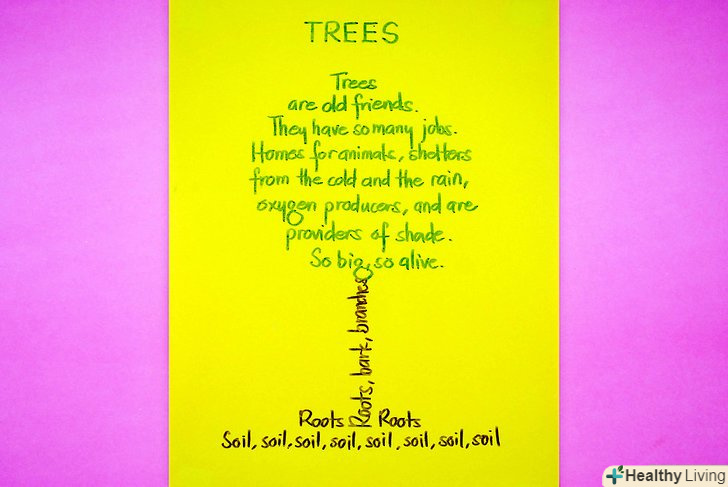 TREES
Trees
are old friends.
They have so many jobs.
Homes for animals, shelters
from the cold and the rain,
oxygen producers, and are
providers of shade.
So big, so alive.
Roots, bark, branches
Roots Roots
Soil, soil, soil, soil, soil, soil, soil, soil
Healthy Living